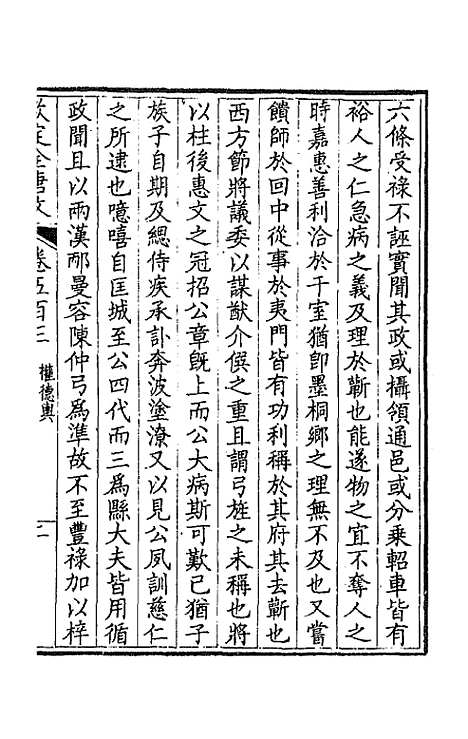 六條受祿不誣實聞其政或攝領通邑或分乗軺車皆有
裕人之仁急病之義及理於蘄也能遂物之宜不奪人之
時嘉惠善利洽於千室猶卽墨桐鄉之理無不及也又嘗
饋師於回中從事於夷門皆有功利稱於其府其去蘄也
西方節將議委以謀猷介僎之重且謂弓旌之未稱也將
以柱後惠文之冠招公章旣上而公大病斯可歎已猶子
族子自期及緦侍疾承訃奔波塗潦又以見公夙訓慈仁
之所逮也噫嘻自匡城至公四代而三爲縣大夫皆用循
政聞且以兩漢邴曼容陳仲弓爲準故不至豐祿加以梓
欽定全唐文
卷五百三
權德輿